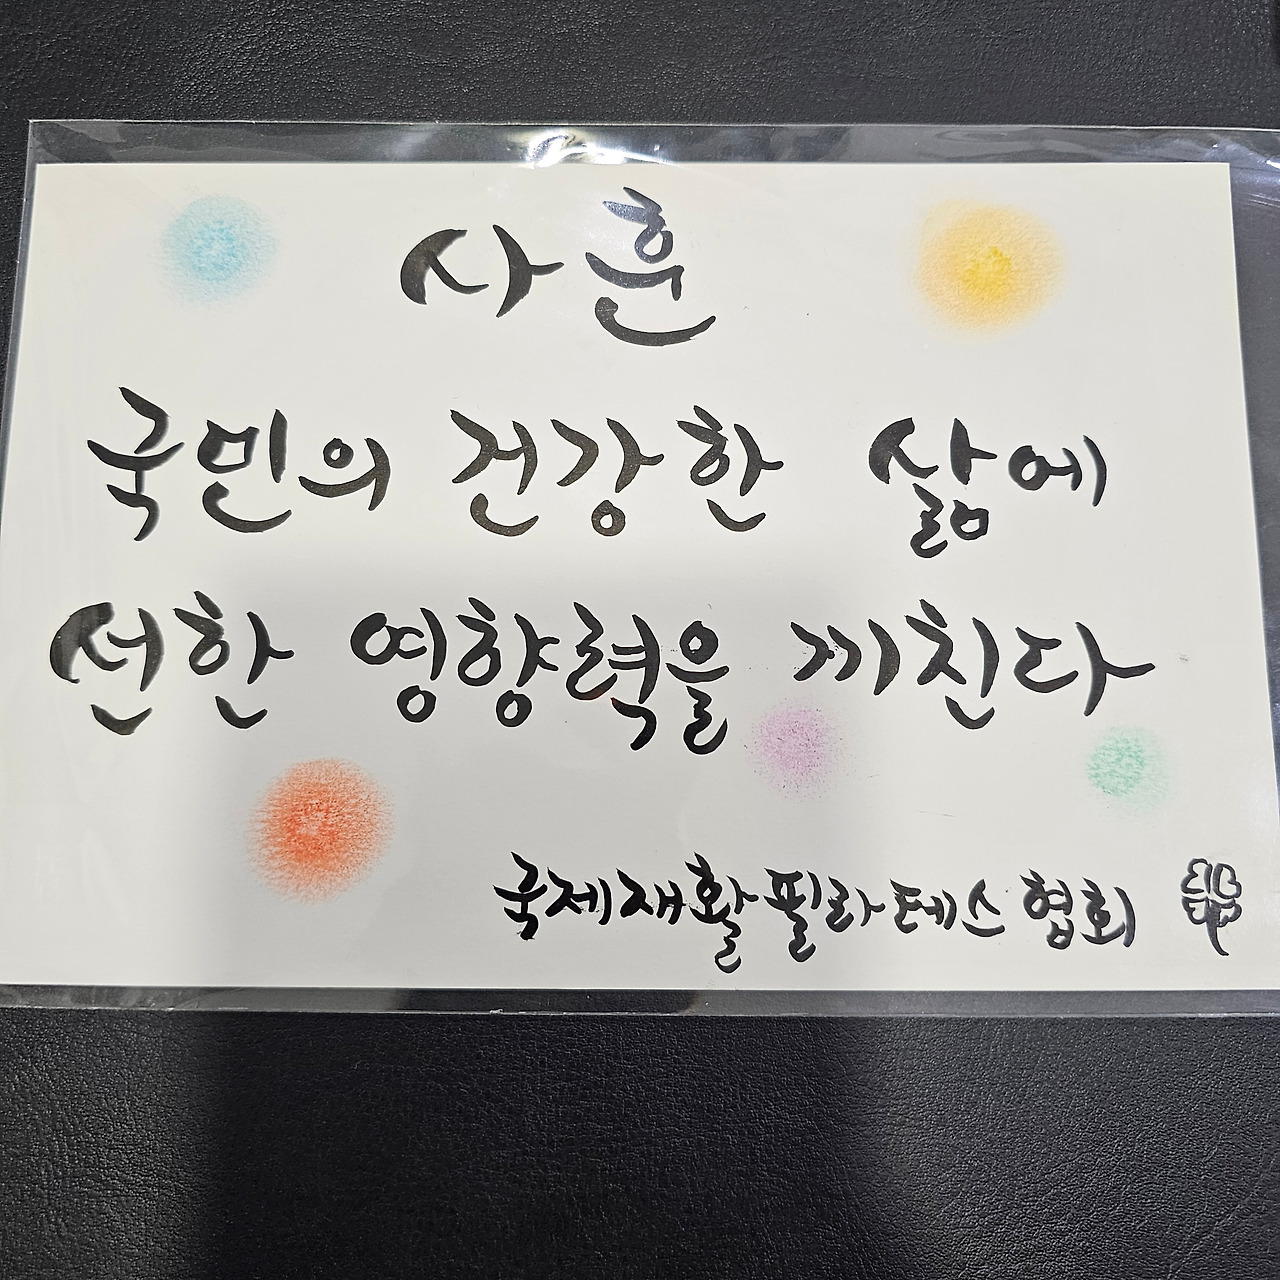 사훈
국민의 건강한 삶에
선한 영향력을 끼친다
국제재활필라테스협회